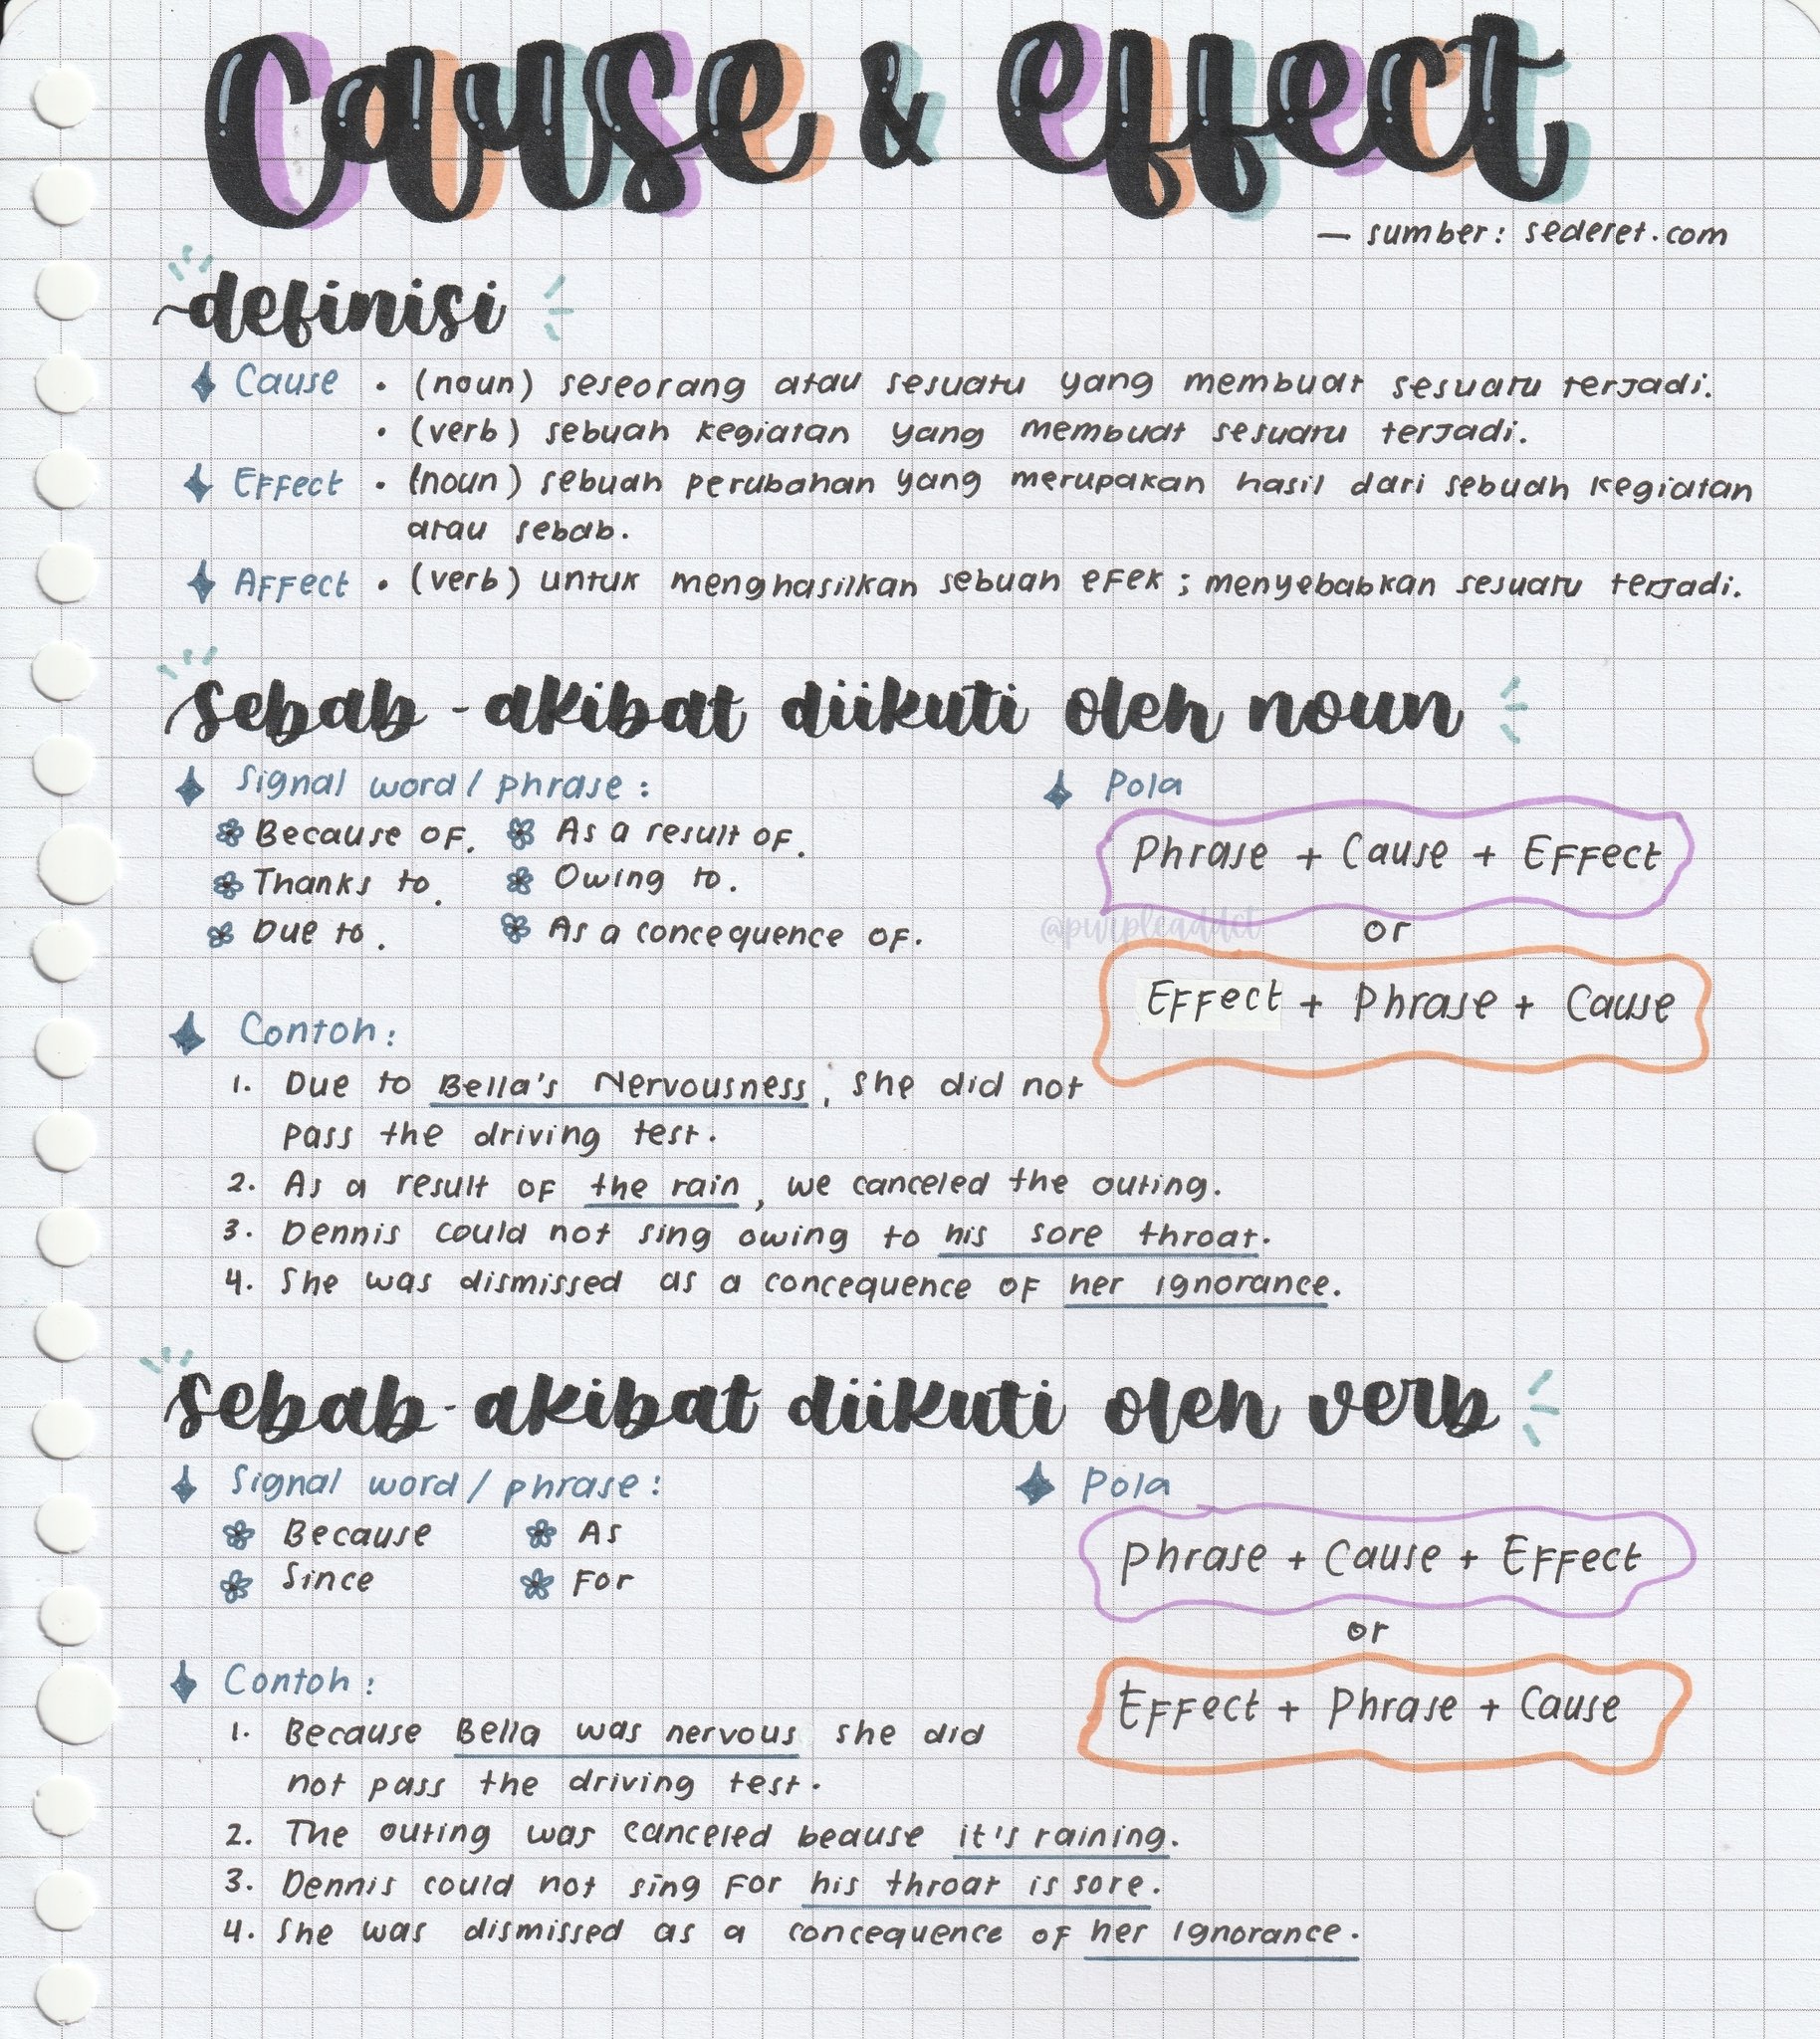 Cause & Effect
— sumber: sederet.com
definisi
Cause • (noun) seseorang atau sesuatu yang membuat sesuatu terjadi.
• (verb) sebuah kegiatan yang membuat sesuatu terjadi.
Effect • (noun) sebuah perubahan yang merupakan hasil dari sebuah kegiatan
atau sebab.
Affect • (verb) untuk menghasilkan sebuah efek ; menyebabkan sesuatu terjadi.
sebab - akibat diikuti oleh noun
Signal word / phrase :
Because of.
As a result of.
Thanks to.
Owing to.
Due to.
As a concequence of.
Pola
Phrase + Cause + Effect
@purpleaddct
or
Effect + Phrase + Cause
Contoh :
1. Due to Bella's Nervousness, she did not
pass the driving test.
2. As a result of the rain, we canceled the outing.
3. Dennis could not sing owing to his sore throat.
4. She was dismissed as a concequence of her ignorance.
sebab - akibat diikuti oleh verb
Signal word / phrase :
Because
As
Since
For
Pola
Phrase + Cause + Effect
or
Effect + Phrase + Cause
Contoh :
1. Because Bella was nervous she did
not pass the driving test.
2. The outing was canceled beause it's raining.
3. Dennis could not sing for his throat is sore.
4. She was dismissed as a concequence of her ignorance.